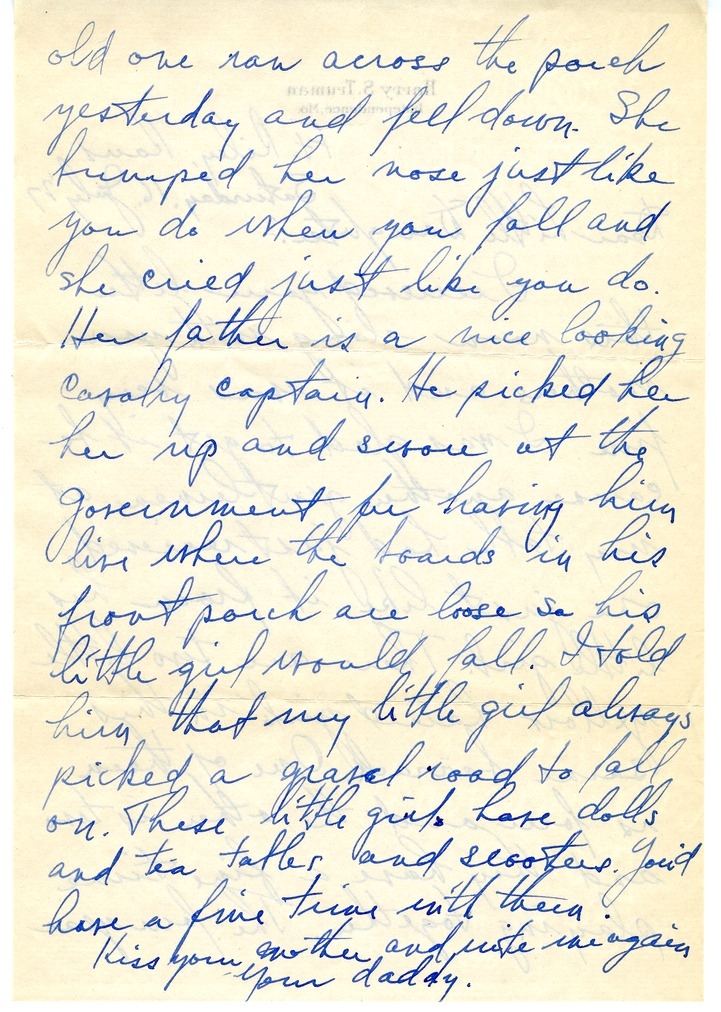 old one ran across the porch
yesterday and fell down. She
bumped her nose just like
you do when you fall and
she cried just like you do.
Her father is a nice looking
Cavalry captain. He picked her
her up and swore at the
government for having him
live where the boards in his
front porch are loose so his
little girl would fall. I told
him that my little girl always
picked a gravel road to fall
on. These little girls have dolls
and tea tables and scooters. You'd
have a fine time with them.
Kiss your mother and write me again
Your daddy.